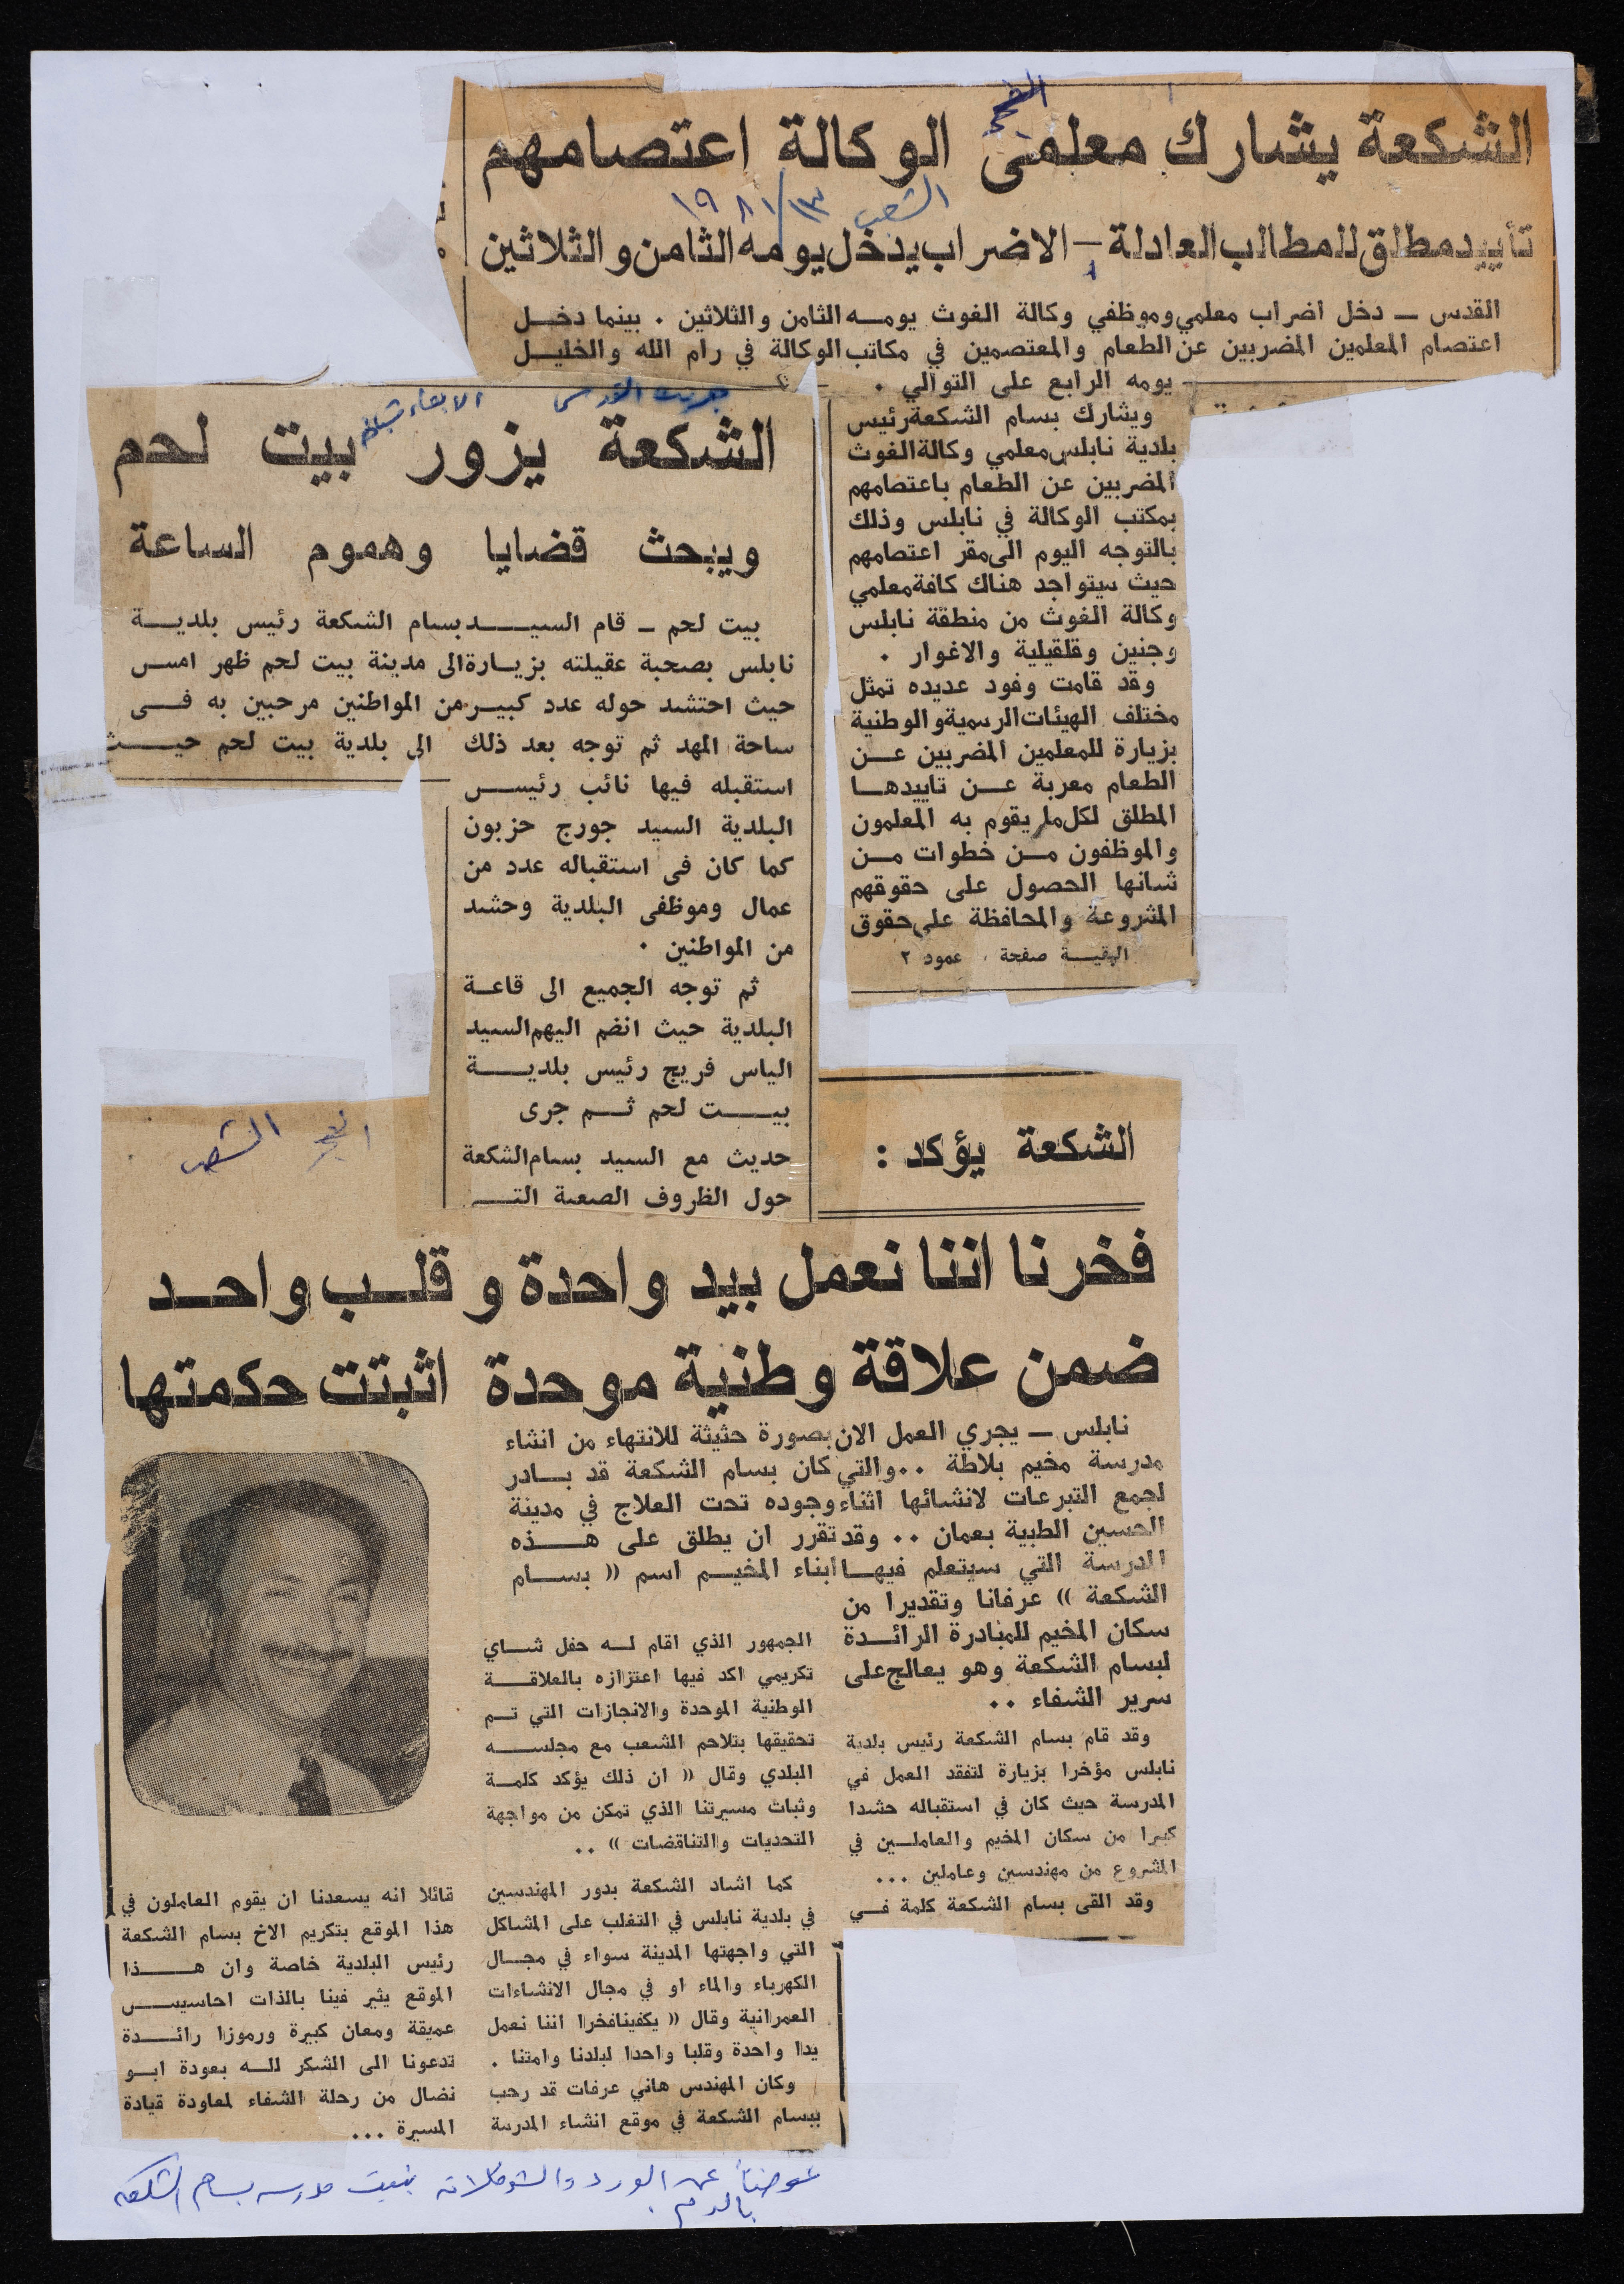 الفجر
الشكعة يشارك معلمي الوكالة اعتصامهم
الشعب ١٣/ ١٩٨١
تأييد مطلق للمطالب العادلة - الاضراب يدخل يومه الثامن والثلاثين
القدس ــ دخل اضراب معلمي وموظفي وكالة الغوث يومــه الثامن والثلاثين . بينما دخــل
اعتصام المعلمين المضربين عن الطعام والمعتصمين في مكاتب الوكالة في رام الله والخليــل
يومه الرابع على التوالي .
ويشارك بسام الشكعة رئيس
بلدية نابلس معلمي وكالة الغوث
المضربين عن الطعام باعتصامهم
بمكتب الوكالة في نابلس وذلك
بالتوجه اليوم الى مقر اعتصامهم
حيث سيتواجد هناك كافة معلمي
وكالة الغوث من منطقة نابلس
وجنين وقلقيلية والاغوار .
وقد قامت وفود عديده تمثل
مختلف الهيئات الرسمية والوطنية
بزيارة للمعلمين المضربين عــن
الطعام معربة عــن تاييدهــا
المطلق لكل ما يقوم به المعلمون
والموظفون مــن خطوات مــن
شانها الحصول على حقوقهم
المشروعة والمحافظة على حقوق
البقيــة صفحة ، عمود ٢
جريدة القدس
الشكعة يزور بيت لحم
ويبحث قضايا وهموم الساعة
بيت لحم ــ قام الســيــد بسام الشكعة رئيس بلديــة
نابلس بصحبة عقيلته بزيــارة الى مدينة بيت لحم ظهر امس
حيث احتشد حوله عدد كبيــر من المواطنين مرحبين به فــى
ساحة المهد ثم توجه بعد ذلك الى بلدية بيت لحم حيــث
استقبله فيها نائب رئيــس
البلدية السيد جورج حزبون
كما كان فى استقباله عدد من
عمال وموظفى البلدية وحشد
من المواطنين .
ثم توجه الجميع الى قاعــة
البلدية حيث انضم اليهم السيد
الياس فريج رئيس بلديــة
بيــت لحم ثــم جرى
حديث مع السيد بسام الشكعة
حول الظروف الصعبة التــ
الفجر الشعب
الشكعة يؤكد :
فخرنا اننا نعمل بيد واحدة وقلــب واحــد
ضمن علاقة وطنية موحدة اثبتت حكمتها
نابلس ــ يجري العمل الان بصورة حثيثة للانتهاء من انشاء
مدرسة مخيم بلاطة .. والتي كان بسام الشكعة قد بــادر
لجمع التبرعات لانشائها اثناء وجوده تحت العلاج في مدينة
الحسين الطبية بعمان .. وقد تقرر ان يطلق على هــذه
المدرسة التي سيتعلم فيهــا ابناء المخيــم اسم (( بســام
الشكعة )) عرفانا وتقديرا من
سكان المخيم للمبادرة الرائــدة
لبسام الشكعة وهو يعالج على
سرير الشفاء ..
وقد قام بسام الشكعة رئيس بلدية
نابلس مؤخرا بزيارة لتفقد العمل في
المدرسة حيث كان في استقباله حشدا
كبيرا من سكان المخيم والعاملــين في
المشروع من مهندسين وعاملين ...
وقد القى بسام الشكعة كلمة فــي
الجمهور الذي اقام لــه حفل شــاي
تكريمي اكد فيها اعتزازه بالعلاقــة
الوطنية الموحدة والانجازات التي تــم
تحقيقها بتلاحم الشعب مع مجلســه
البلدي وقال (( ان ذلك يؤكد كلمــة
وثبات مسيرتنا الذي تمكن من مواجهة
التحديات والتناقضات )) ..
كما اشاد الشكعة بدور المهندسين
في بلدية نابلس في التغلب على المشاكل
التي واجهتها المدينة سواء في مجــال
الكهرباء والماء او في مجال الانشاءات
العمرانية وقال (( يكفينا فخرا اننا نعمل
يدا واحدة وقلبا واحدا لبلدنا وامتنا .
وكان المهندس هاني عرفات قد رحب
ببسام الشكعة في موقع انشاء المدرسة
قائلا انه يسعدنا ان يقوم العاملون في
هذا الموقع بتكريم الاخ بسام الشكعة
رئيس البلدية خاصة وان هــذا
الموقع يثير فينا بالذات احاسيــس
عميقة ومعان كبيرة ورموزا رائــدة
تدعونا الى الشكر للــه بعودة ابــو
نضال من رحلة الشفاء لمعاودة قيادة
المسيرة ...
عوضاً عن الورد والشوكلاته بنيت مدرسة بسام الشكعه
بالدم .